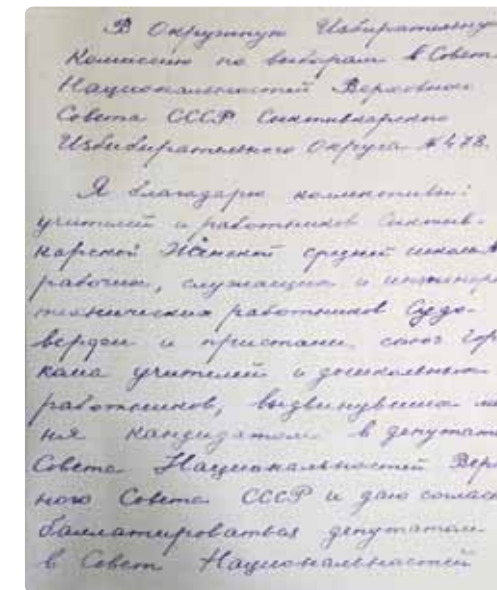 В Окружную Избирательную
Комиссию по выборам в Совет
Национальностей Верховного
Совета СССР Сыктывкарского
Избибирательного округа №478.
Я благодарю коллективы:
учителей и работников Сыктыв-
карской Женской средней школы
рабочих, служащих и инженерно
технических работников Судо-
верфи и пристани, союз гор
кома учителей и дошкольных
работников, выдвинувших ме
ня кандидатом в депутаты
Совета Национальностей Верх
ного Совета СССР и даю соглас
баллатироваться депутатом
в Совет Национальностей